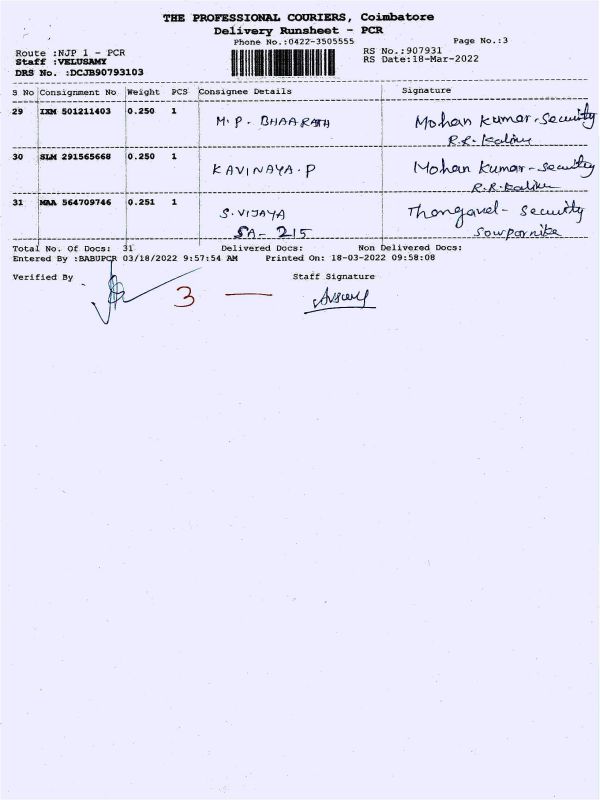 THE PROFESSIONAL COURIERS, Coimbatore
Delivery Runsheet - PCR
Phone No.:0422-3505555
Page No.:3
Route :NJP 1 - PCR
RS No.:907931
Staff :VELUSAMY
RS Date:18-Mar-2022
DRS No. :DCJB90793103
S No Consignment No Weight PCS Consignee Details Signature
29 IXM 501211403 0.250 1 M.P. BHAARATH Mohan Kumar-Security
R.R.
30 SLM 291565668 0.250 1 KAVINAYA.P Mohan Kumar-Security
R.R.
31 MAA 564709746 0.251 1 S.VIJAYA Thangavel- Security
SA- 215 Sowparnika
Total No. Of Docs: 31 Delivered Docs: Non Delivered Docs:
Entered By :BABUPCR 03/18/2022 9:57:54 AM Printed On: 18-03-2022 09:58:08
Verified By Staff Signature
3 —